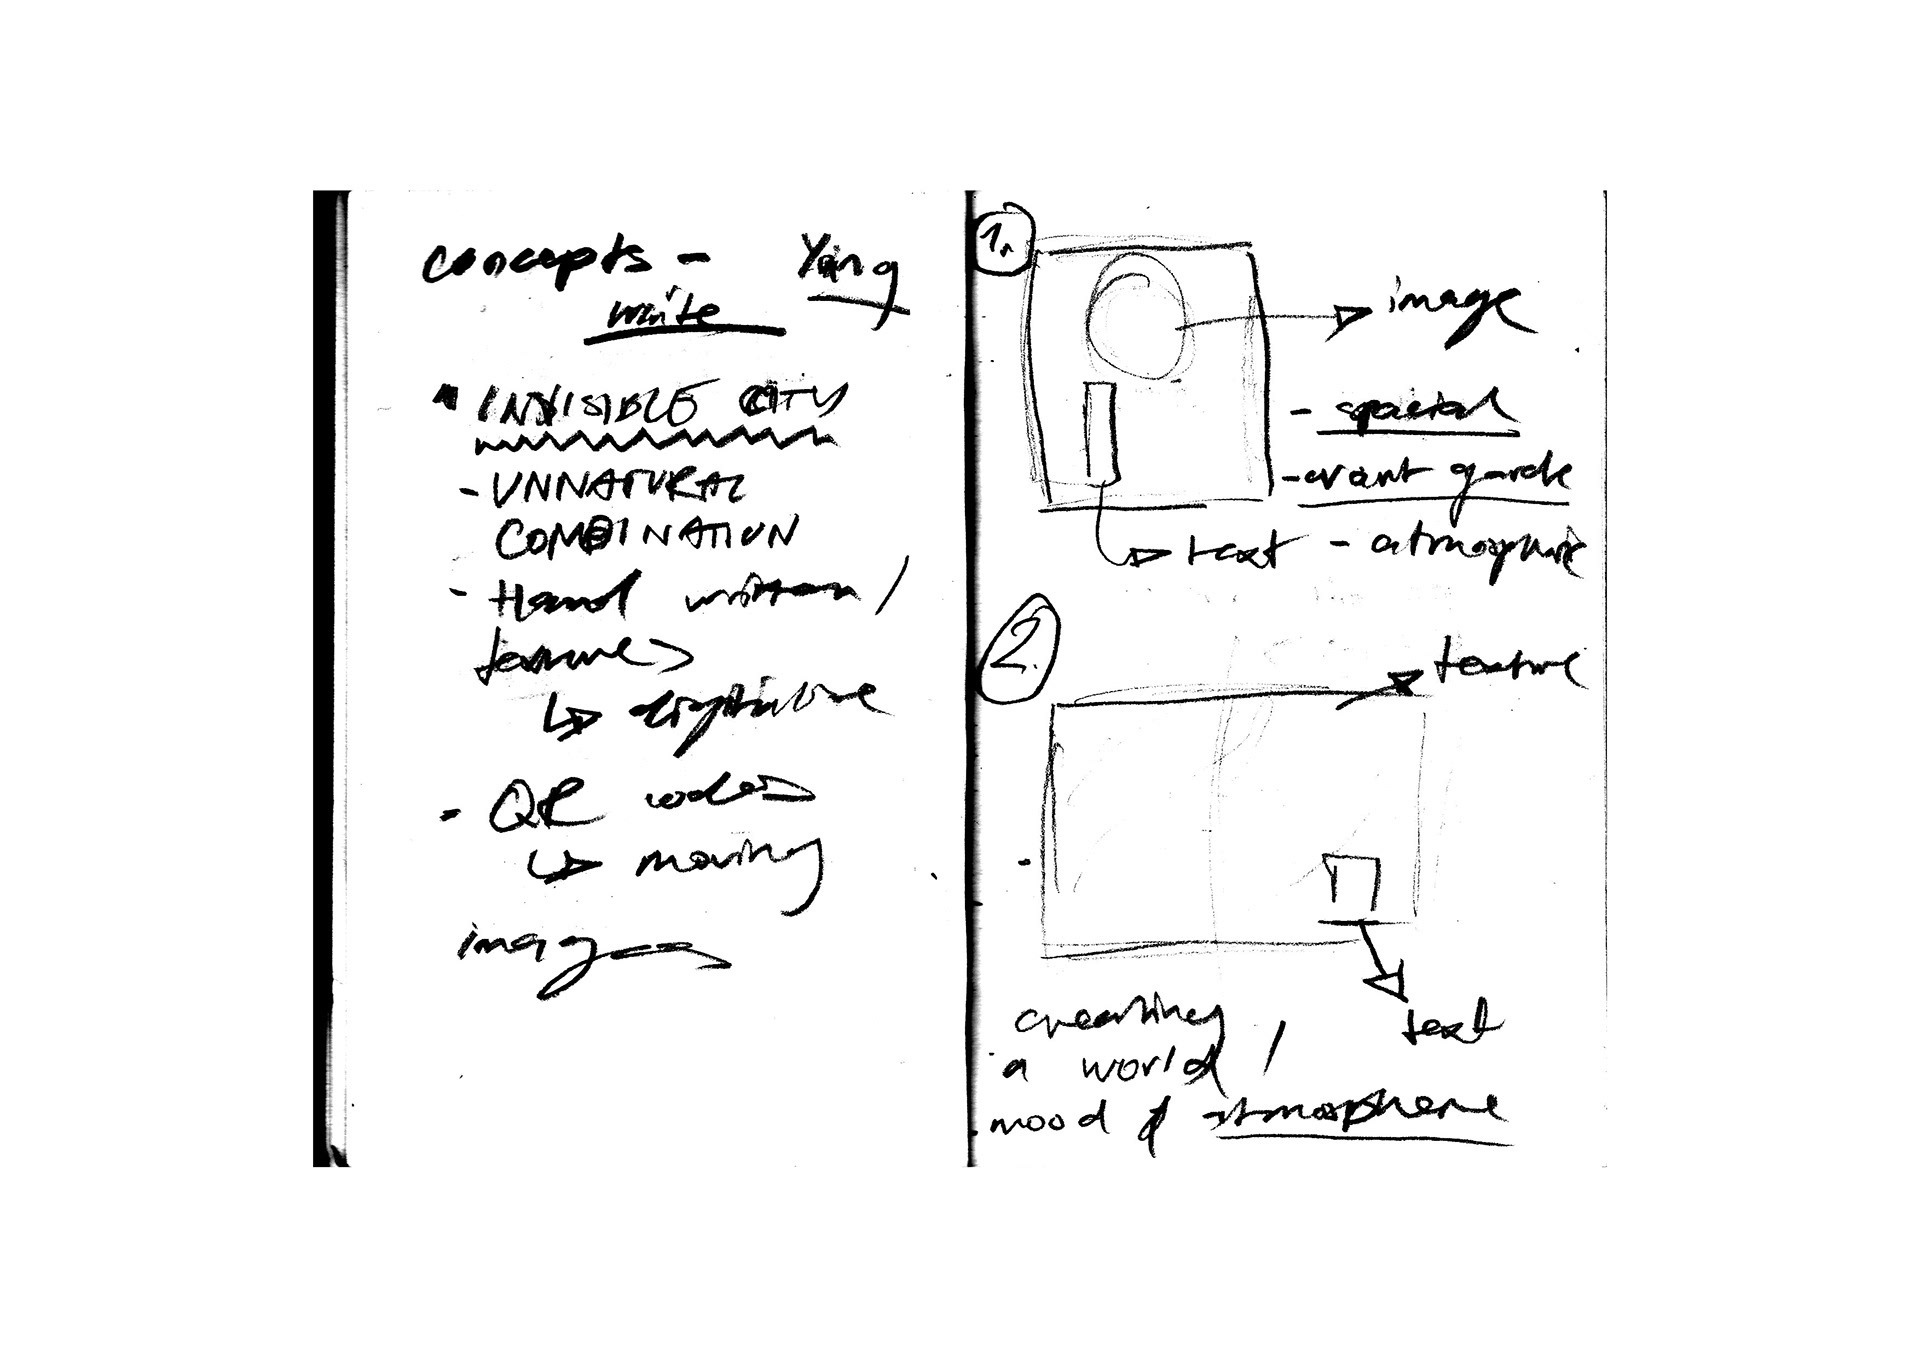 concepts - Yang
write
INVISIBLE CITY
- UNNATURAL
COMBINATION
- Hand written /
textures
- QR codes
moving
image
1.
image
- spacial
- avant garde
text - atmospheric
2.
texture
text
creating
a world /
mood & atmosphere